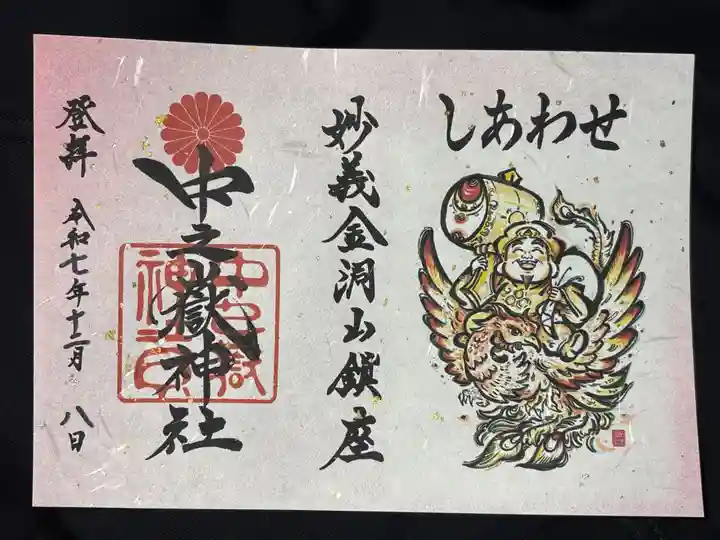 しあわせ
妙義金洞山鎮座
中之嶽神社
登拝
令和七年十二月
八日